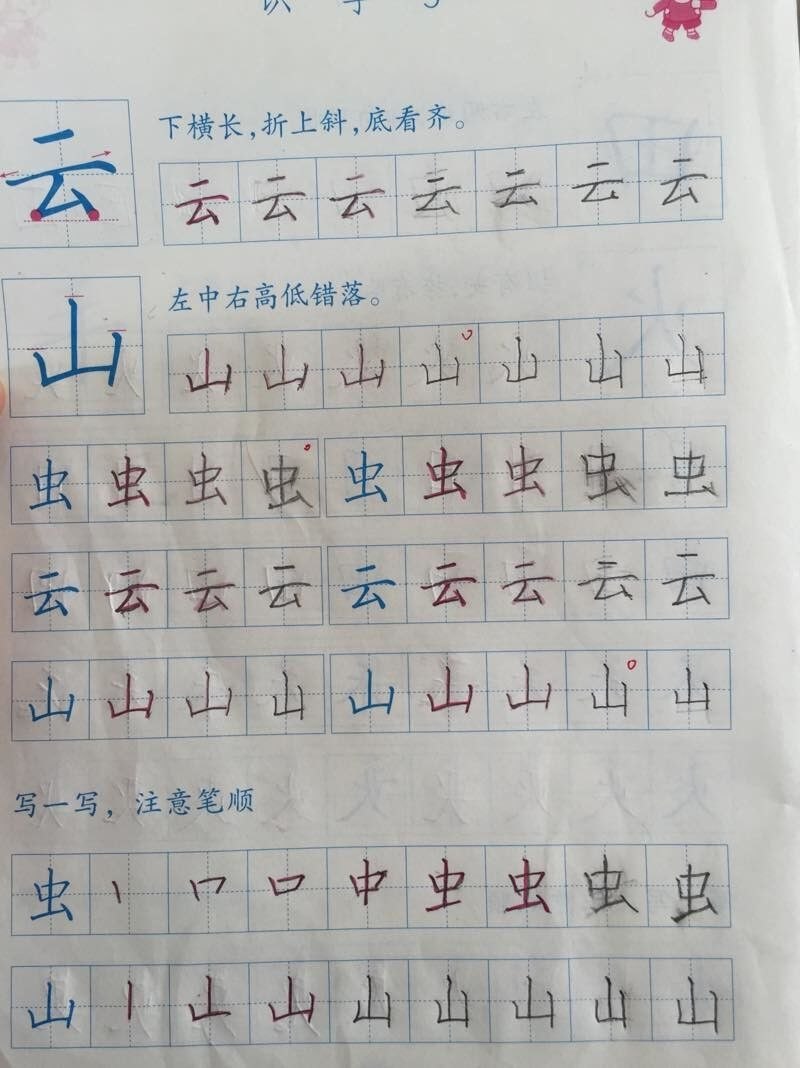 识 字 5
云 下横长，折上斜，底看齐。
云 云 云 云 云 云 云
山 左中右高低错落。
山 山 山 山 山 山 山
虫 虫 虫 虫 虫 虫 虫 虫 虫
云 云 云 云 云 云 云 云 云
山 山 山 山 山 山 山 山 山
写一写，注意笔顺
虫 丶 口 中 虫 虫 虫 虫
山 丨 山 山 山 山 山 山